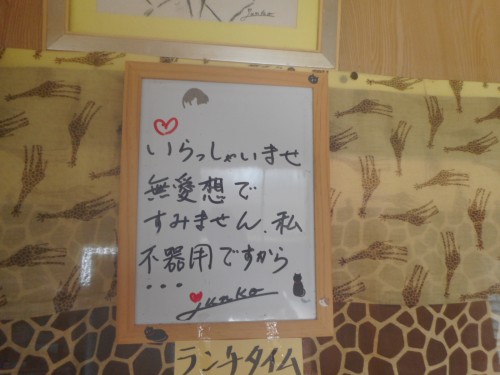 Junko
いらっしゃいませ
無愛想で
すみません、私
不器用ですから
・・・
Junko
ランチタイム